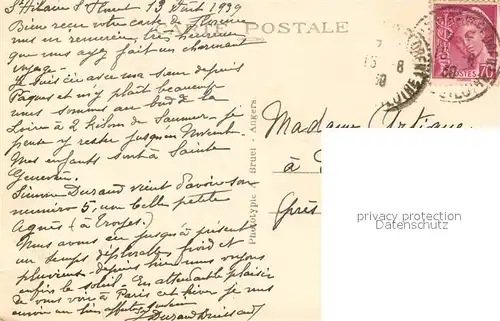 St Hilaire St Florent 13 Août 1939
CARTE POSTALE
Bien reçu votre carte de
vous en remercions, très heureux
que vous ayez fait un charmant
voyage.
Je suis ici avec ma sœur depuis
Pâques et m'y plais beaucoup
nous sommes au bord de la
Loire à 2 kilom de Saumur. Je
pense y rester jusqu'en Novembre.
Mes enfants sont à Sainte
Geneviève.
Simone Durand vient d'avoir son
numéro 5, une belle petite
Agnès (à Troyes).
Nous avons eu jusqu'à présent
un temps déplorable, froid et
pluvieux - depuis hier nous voyons
enfin le soleil - En attendant le plaisir
de vous voir à Paris cet hiver je vous
envoie un bien affectueux
Durand
Phototypie Bruel - Angers.
Madame
à
près
POSTES
70c
privacy protection
Datenschutz